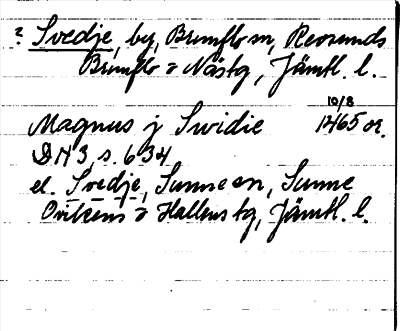 ? Svedje, by, Brunflo sn, Revsunds
Brunflo o Näs tg, Jämtl. l.
10/8
Magnus j Swidie 1465 or.
DN 3, s. 634
el. Svedje, Sunne sn, Sunne
Ovikens o Hallens tg, Jämtl. l.